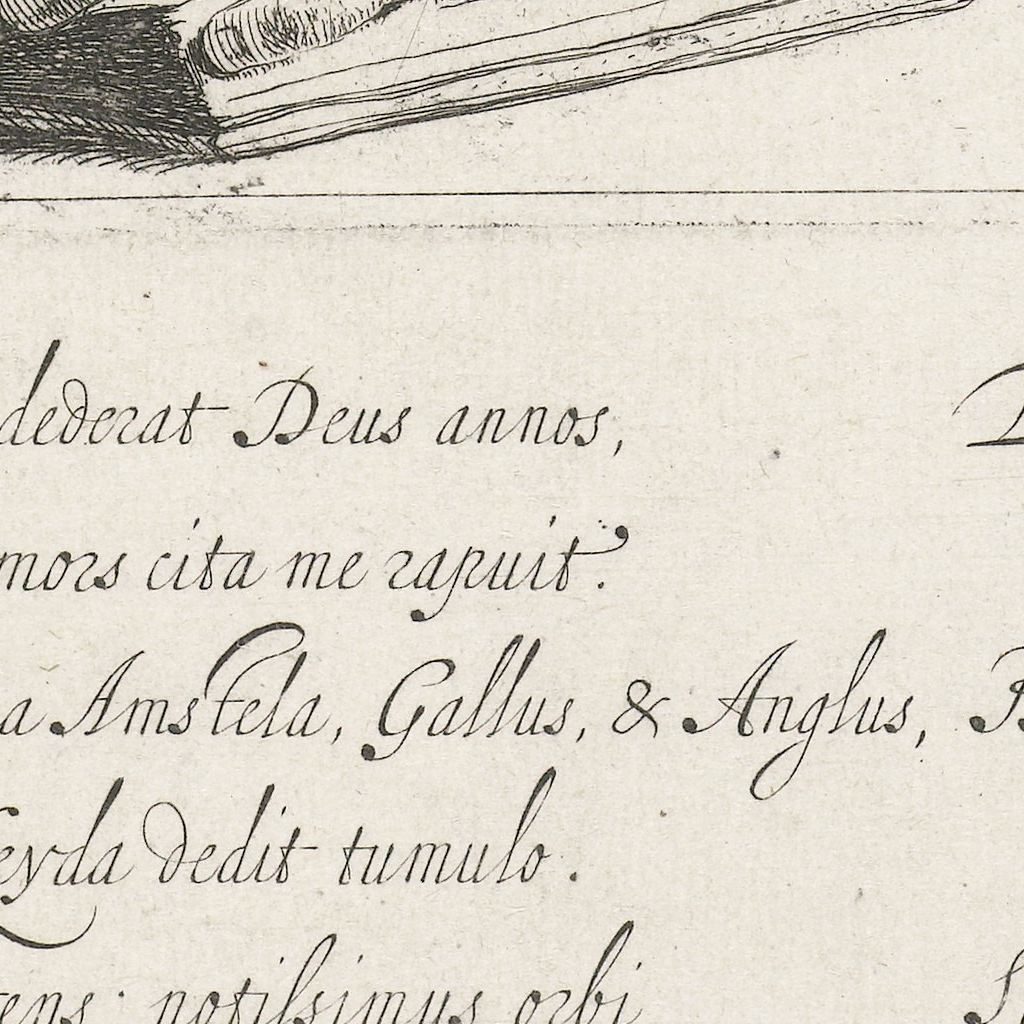 dederat Deus annos,
mors cita me rapuit.
a Amstela, Gallus, & Anglus,
eyda dedit tumulo.
ens: notissimus orbi